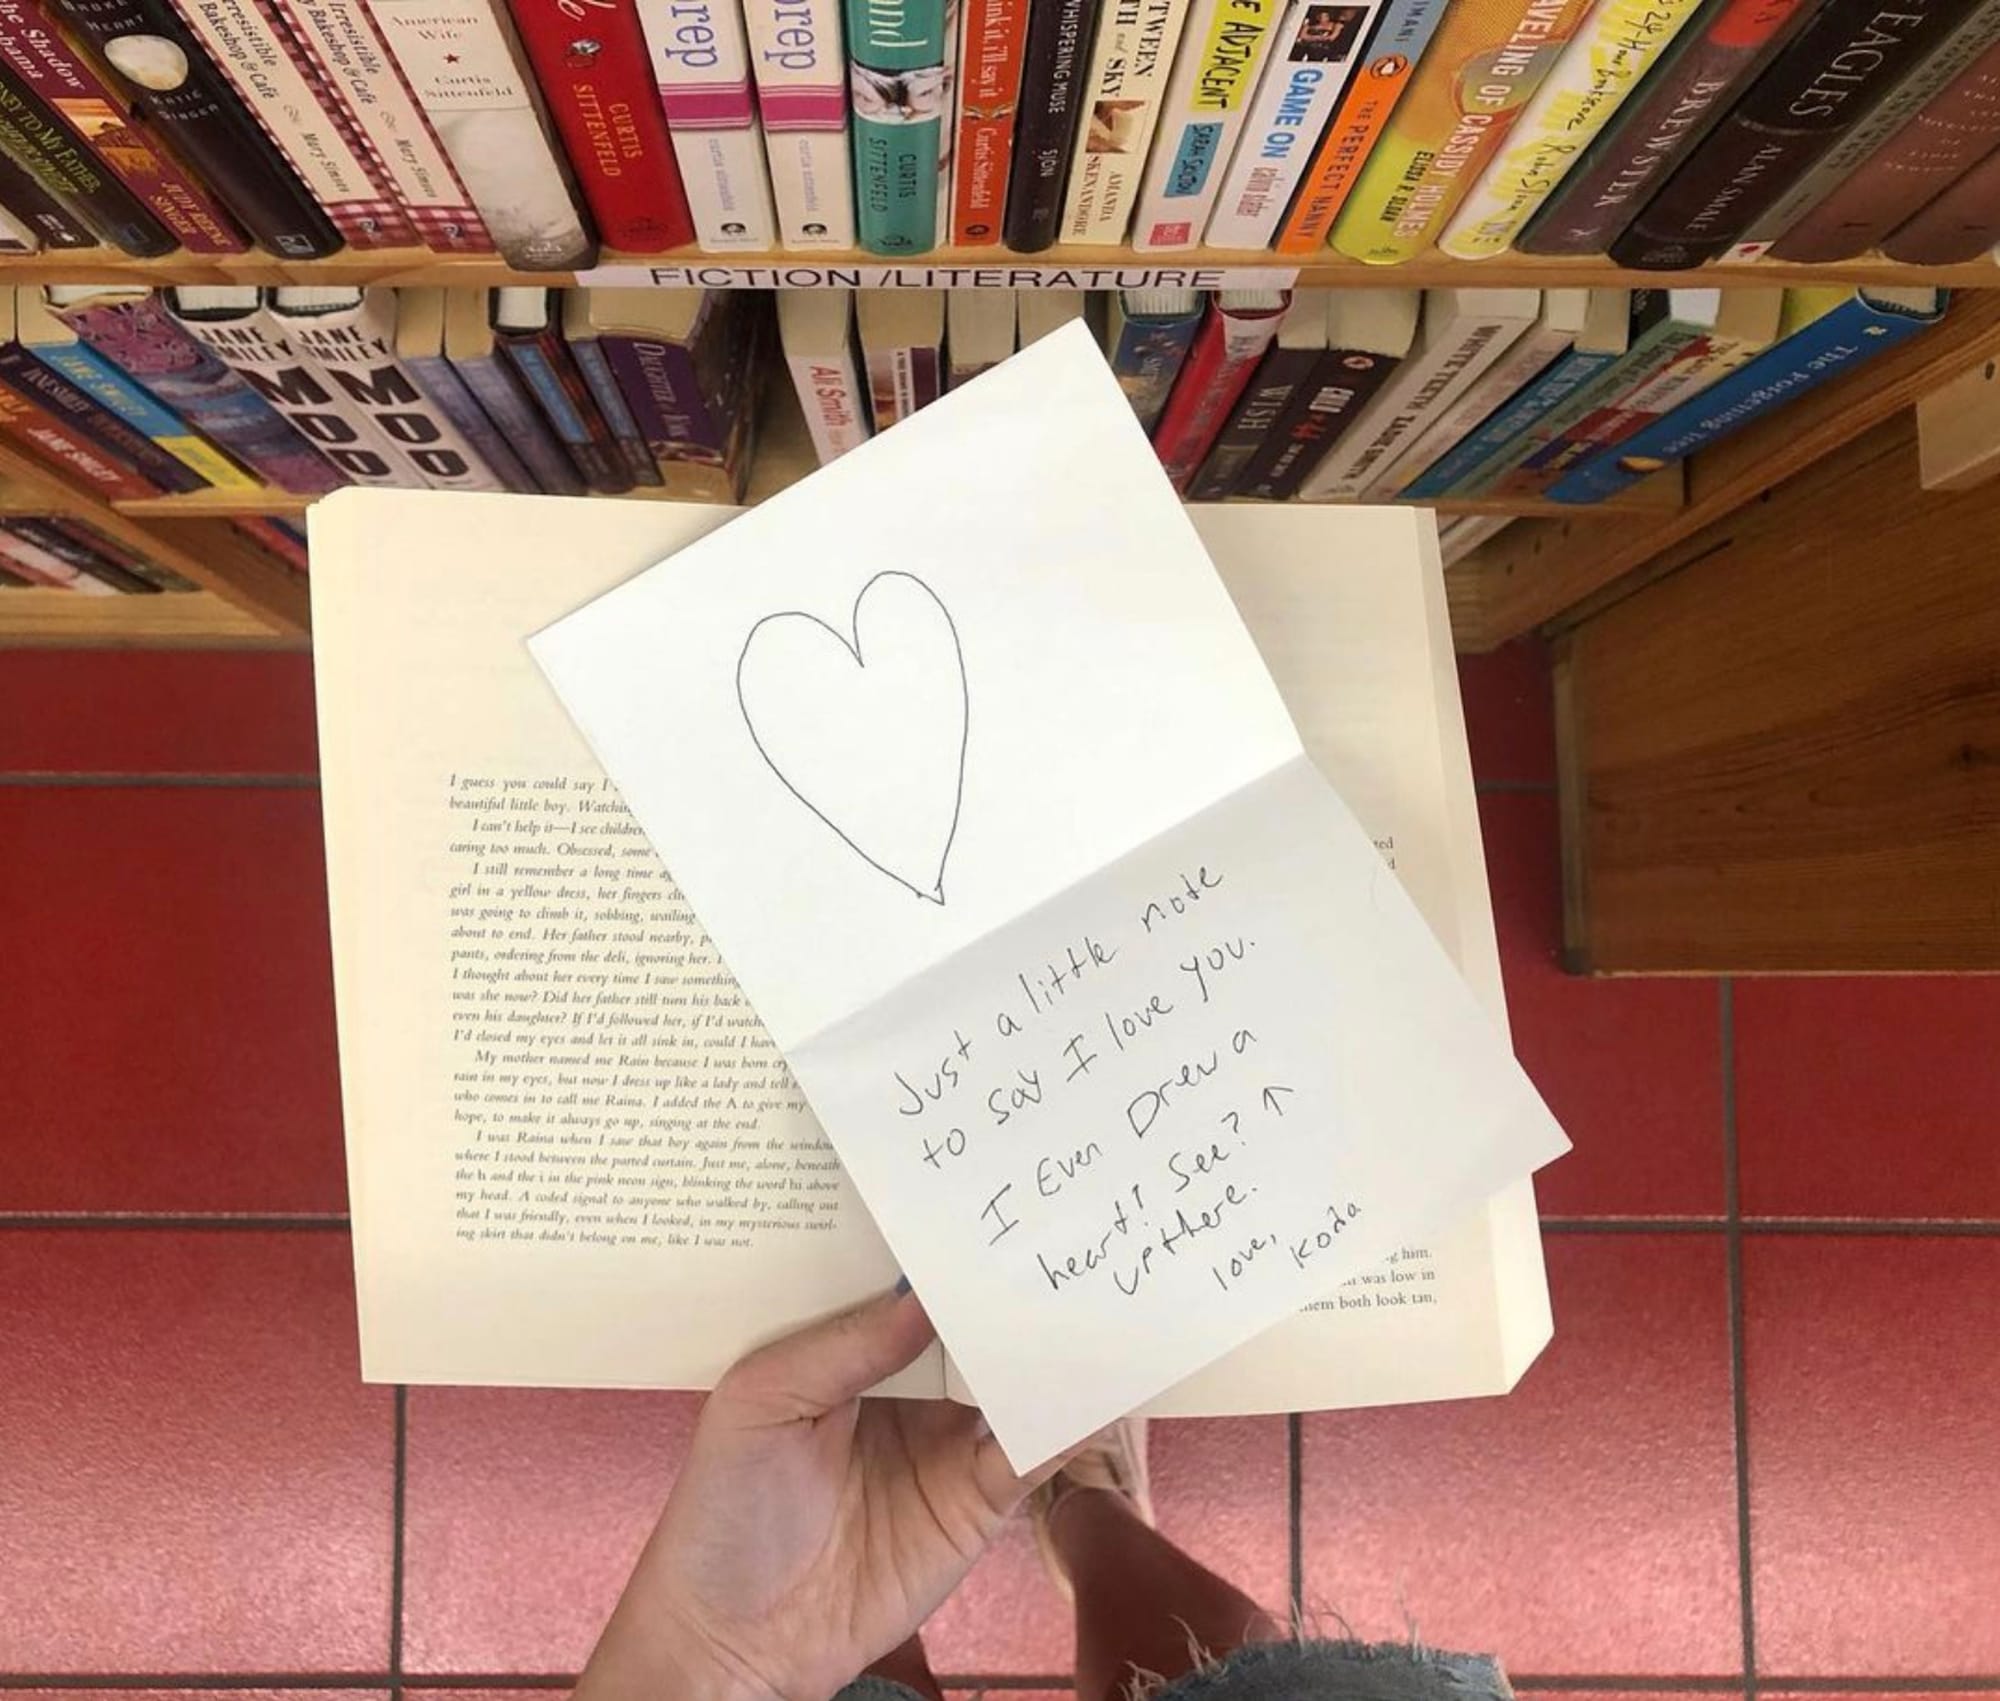 The Shadow
JUDY REENE SINGER
BROKE HEART
KATIE SINGER
Irresistible
Bakeshop & Café
Mary Simses
Irresistible
Bakeshop & Café
Mary Simses
American
Wife
Curtis
Sittenfeld
CURTIS
SITTENFELD
prep
curtis sittenfeld
prep
curtis sittenfeld
CURTIS
SITTENFELD
Curtis Sittenfeld
WHISPERING MUSE
SJÓN
AMANDA
SKENANDORE
ADJACENT
GAME ON
THE PERFECT NANNY
SLIMANI
CASSIDY HOLMES
ELISSA R. SLOAN
Robin Sloan
BREWSTER
EAGLES
ALAN SMALE
FICTION / LITERATURE
JANE SMILEY
JANE
SMILEY
MOO
JANE
SMILEY
MOO
Ali Smith
WISH
CHILD 44
WHITE TEETH ZADIE SMITH
The Forgetting Tree
Just a little note
to say I love you.
I Even Drew a
heart! See? ↑
up there.
love,
Koda
I guess you could say I
beautiful little boy. Watchin
I can't help it—I see children
caring too much. Obsessed, some
I still remember a long time ag
girl in a yellow dress, her fingers
was going to climb it, sobbing, wailing
about to end. Her father stood nearby, p
pants, ordering from the deli, ignoring her. I
I thought about her every time I saw something
was she now? Did her father still turn his back
even his daughter? If I'd followed her, if I'd watch
I'd closed my eyes and let it all sink in, could I hav
My mother named me Rain because I was born cry
rain in my eyes, but now I dress up like a lady and tell
who comes in to call me Raina. I added the A to give my
hope, to make it always go up, singing at the end.
I was Raina when I saw that boy again from the window
where I stood between the parted curtain. Just me, alone, beneath
the h and the i in the pink neon sign, blinking the word hi above
my head. A coded signal to anyone who walked by, calling out
that I was friendly, even when I looked, in my mysterious swirl-
ing skirt that didn't belong on me, like I was not.
him.
was low in
them both look tan,